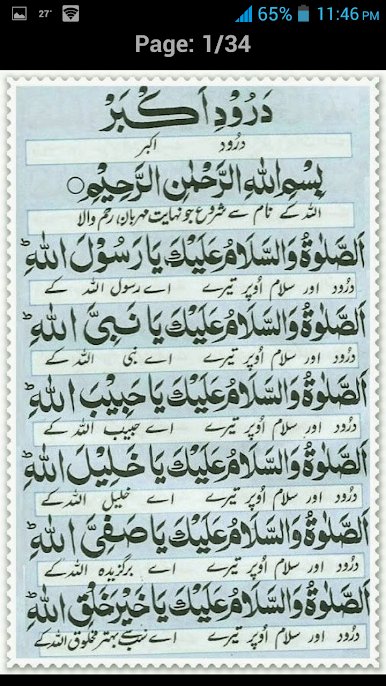 27° 65% 11:46 PM
Page: 1/34
دَرُوْدِ اَكْبَرْ
درُود اکبر
بِسْمِ اللّٰهِ الرَّحْمٰنِ الرَّحِيْمِ
اللہ کے نام سے شروع جو نہایت مہربان رحم والا
اَلصَّلٰوةُ وَالسَّلَامُ عَلَيْكَ يَا رَسُوْلَ اللّٰهِ ؕ
درُود اور سلام اُوپر تیرے اے رسول اللہ کے
اَلصَّلٰوةُ وَالسَّلَامُ عَلَيْكَ يَا نَبِيَّ اللّٰهِ ؕ
درُود اور سلام اُوپر تیرے اے نبی اللہ کے
اَلصَّلٰوةُ وَالسَّلَامُ عَلَيْكَ يَا حَبِيْبَ اللّٰهِ ؕ
درُود اور سلام اُوپر تیرے اے حبیب اللہ کے
اَلصَّلٰوةُ وَالسَّلَامُ عَلَيْكَ يَا خَلِيْلَ اللّٰهِ ؕ
درُود اور سلام اُوپر تیرے اے خلیل اللہ کے
اَلصَّلٰوةُ وَالسَّلَامُ عَلَيْكَ يَا صَفِيَّ اللّٰهِ ؕ
درُود اور سلام اُوپر تیرے اے برگزیدہ اللہ کے
اَلصَّلٰوةُ وَالسَّلَامُ عَلَيْكَ يَا خَيْرَ خَلْقِ اللّٰهِ ؕ
درُود اور سلام اُوپر تیرے اے سب سے بہتر مخلوق اللہ کے